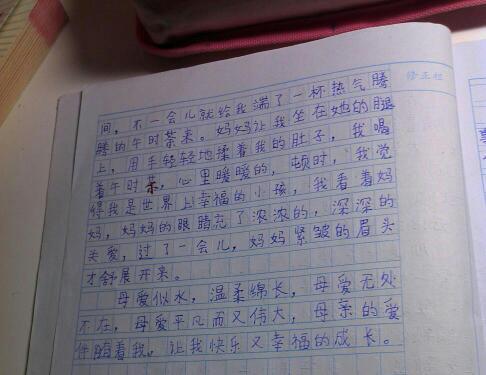 修正栏
间，不一会儿就给我端了一杯热气腾
腾的午时茶来。妈妈让我坐在她的腿
上，用手轻轻地揉着我的肚子，我喝
着午时茶，心里暖暖的，顿时，我觉
得我是世界上幸福的小孩，我看着妈
妈，妈妈的眼睛充了浓浓的，深深的
关爱，过了一会儿，妈妈紧皱的眉头
才舒展开来。
母爱似水，温柔绵长，母爱无处
不在，母爱平凡而又伟大，母亲的爱
伴随着我，让我快乐又幸福的成长。